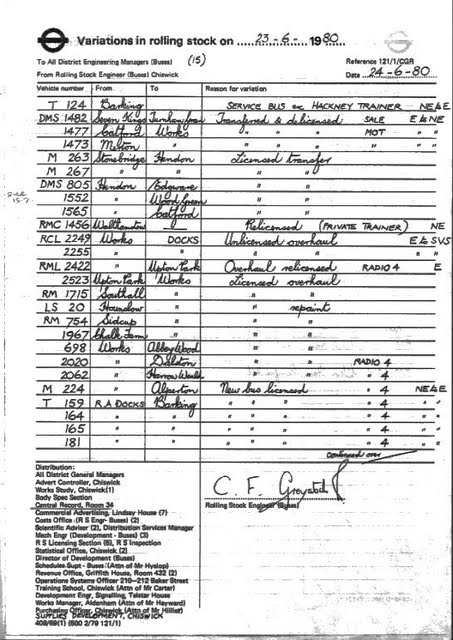 Variations in rolling stock on 23-6-1980
To All District Engineering Managers (Buses) (15) Reference 121/1/CGR
From Rolling Stock Engineer (Buses) Chiswick Date 24-6-80
Vehicle number From To Reason for variation
T 124 Barking SERVICE BUS ex HACKNEY TRAINER NE&E
DMS 1482 Seven Kings Turnham Green Transferred & delicensed SALE E & NE
1477 Catford Works " " " MOT " "
1473 Merton " " " " " "
M 263 Stonebridge Hendon Licensed transfer
M 267 " " " "
DMS 805 Hendon Edgware " "
1552 " Wood Green " "
1565 " Catford " "
RMC 1456 Walthamstow Relicensed (PRIVATE TRAINER) NE
RCL 2249 Works DOCKS Unlicensed overhaul E & SVS
2255 " " " " " "
RML 2422 " Upton Park Overhaul relicensed RADIO 4 E
2523 Upton Park Works Licensed overhaul
RM 1715 Southall " " "
LS 20 Hounslow " " repaint
RM 754 Sidcup " " "
1967 Chalk Farm " " "
698 Works Abbey Wood " "
2020 " Dalston " " RADIO 4
2062 " Harrow Weald " " " 4
M 224 " Alperton New bus licensed " 4 NE&E
T 159 R.A DOCKS Barking " " " " 4 " "
164 " " " " " " 4 " "
165 " " " " " " 4 " "
181 " " " " " " 4 " "
Continued over
Distribution:
All District General Managers
Advert Controller, Chiswick
Works Study, Chiswick(1)
Body Spec Section
Central Record, Room 34
Commercial Advertising, Lindsay House (7)
Costs Office (R S Engr- Buses) (2)
Scientific Adviser (2), Distribution Services Manager
Mech Engr (Development - Buses) (3)
R S Licensing Section (6), R S Inspection
Statistical Office, Chiswick (2)
Director of Development (Buses)
Schedules Supt - Buses (Attn of Mr Hyslop)
Revenue Office, Griffith House, Room 432 (2)
Operations Systems Officer 210-212 Baker Street
Training School, Chiswick (Attn of Mr Carter)
Development Engr, Signalling, Telstar House
Works Manager, Aldenham (Attn of Mr Hayward)
Purchasing Officer, Chiswick (Attn of Mr Hillier)
SUPPLIES DEVELOPMENT, CHISWICK
408/69(1) (600 2/79 121/1)
C. F. Greystock
Rolling Stock Engineer (Buses)